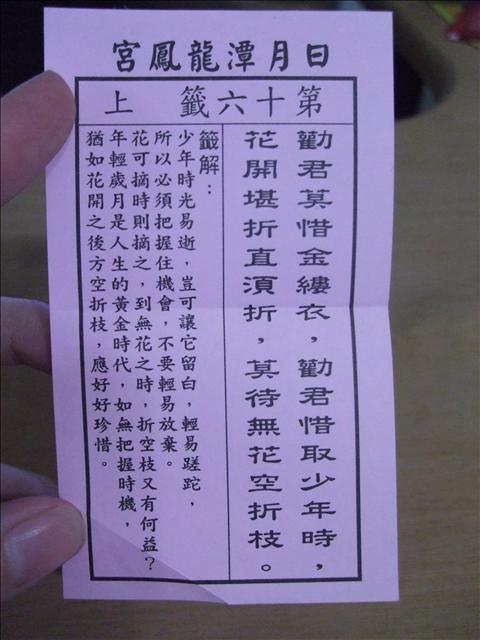 日月潭龍鳳宮
第十六籤　上
勸君莫惜金縷衣，勸君惜取少年時，
花開堪折直須折，莫待無花空折枝。
籤解：
少年時光易逝，豈可讓它留白，輕易蹉跎，
所以必須把握住機會，不要輕易放棄。
花可摘時則摘之，到無花之時，折空枝又有何益？
年輕歲月是人生的黃金時代，如無把握時機，
猶如花開之後方空折枝，應好好珍惜。